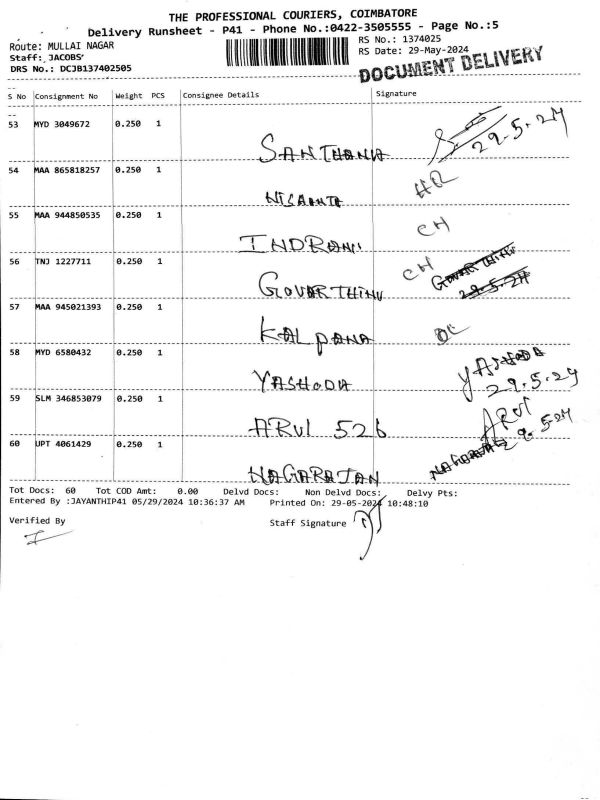 THE PROFESSIONAL COURIERS, COIMBATORE
Delivery Runsheet - P41 - Phone No.:0422-3505555 - Page No.:5
Route: MULLAI NAGAR
RS No.: 1374025
Staff: JACOBS'
RS Date: 29-May-2024
DRS No.: DCJB137402505
DOCUMENT DELIVERY
S No Consignment No Weight PCS Consignee Details Signature
53 MYD 3049672 0.250 1 SANTHANA 29.5.24
54 MAA 865818257 0.250 1 NISANTE HR
55 MAA 944850535 0.250 1 INDRANI CH
56 TNJ 1227711 0.250 1 GOVARTHINI CH GOVARTHINI 29.5.24
57 MAA 945021393 0.250 1 KALPANA
58 MYD 6580432 0.250 1 YASHODA YASHODA 29.5.24
59 SLM 346853079 0.250 1 ARUL 526 ARUL 29.5.24
60 UPT 4061429 0.250 1 NAGARAJAN NAGARAJAN
Tot Docs: 60 Tot COD Amt: 0.00 Delvd Docs: Non Delvd Docs: Delvy Pts:
Entered By :JAYANTHIP41 05/29/2024 10:36:37 AM Printed On: 29-05-2024 10:48:10
Verified By
Staff Signature